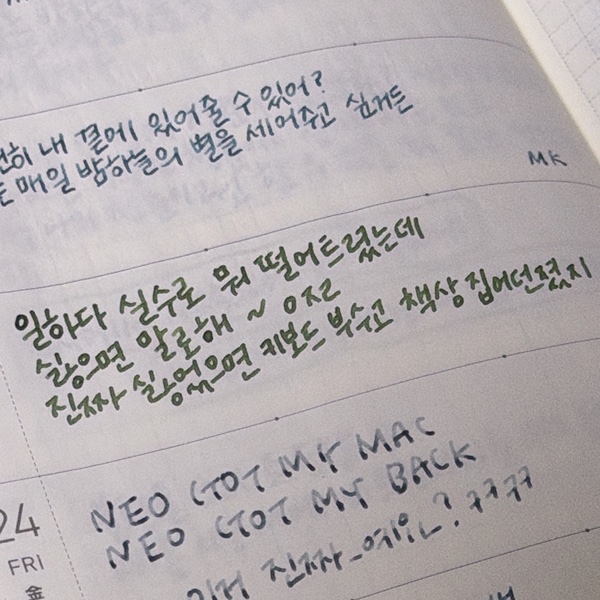 내 곁에 있어줄 수 있어?
매일 밤하늘의 별을 세어주고 싶거든
MK
일하다 실수로 뭐 떨어트렸는데
싫으면 말로해 ~
진짜 싫었으면 키보드 부수고 책상 집어던졌지
NEO GOT MY MAC
NEO GOT MY BACK
24
이거 진짜 ? ㅋㅋㅋㅋ
FRI
金